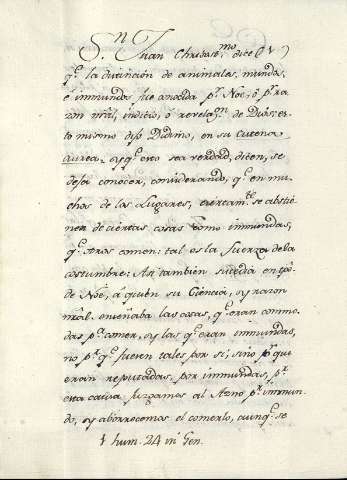 Sⁿ Juan Chrisost.mo dice (1)
q.e la divicion de animales mundos,
è inmundos fue conocida p.r Noè, ò p.r ra
zon nral, indicio, ò revelaᵒn de Dios: es
to mismo dijo Didimo, en su Catena
aurea, y q.e esto sea verdad, dicen, se
deja conocer, considerando, q.e en mu
chos de los Lugares, ciertam.te se abstie
nen de ciertas cosas como inmundas,
q.e otros comen: tal es la fuerza de la
costumbre: Asi tambien sucedia en tpô
de Noè, a quien su Ciencia, y razon
nral. enseñaba las cosas, q.e eran commo
das p.a comer, y las q.e eran inmundas,
no p.r q.e fuesen tales por si, sino p.r que
eran reputadas, por inmundas, p.r
esta causa juzgamos al Asno p.r inmun
do, y aborrecemos el comerlo, aunq.e se
1 hum. 24 in Gen.